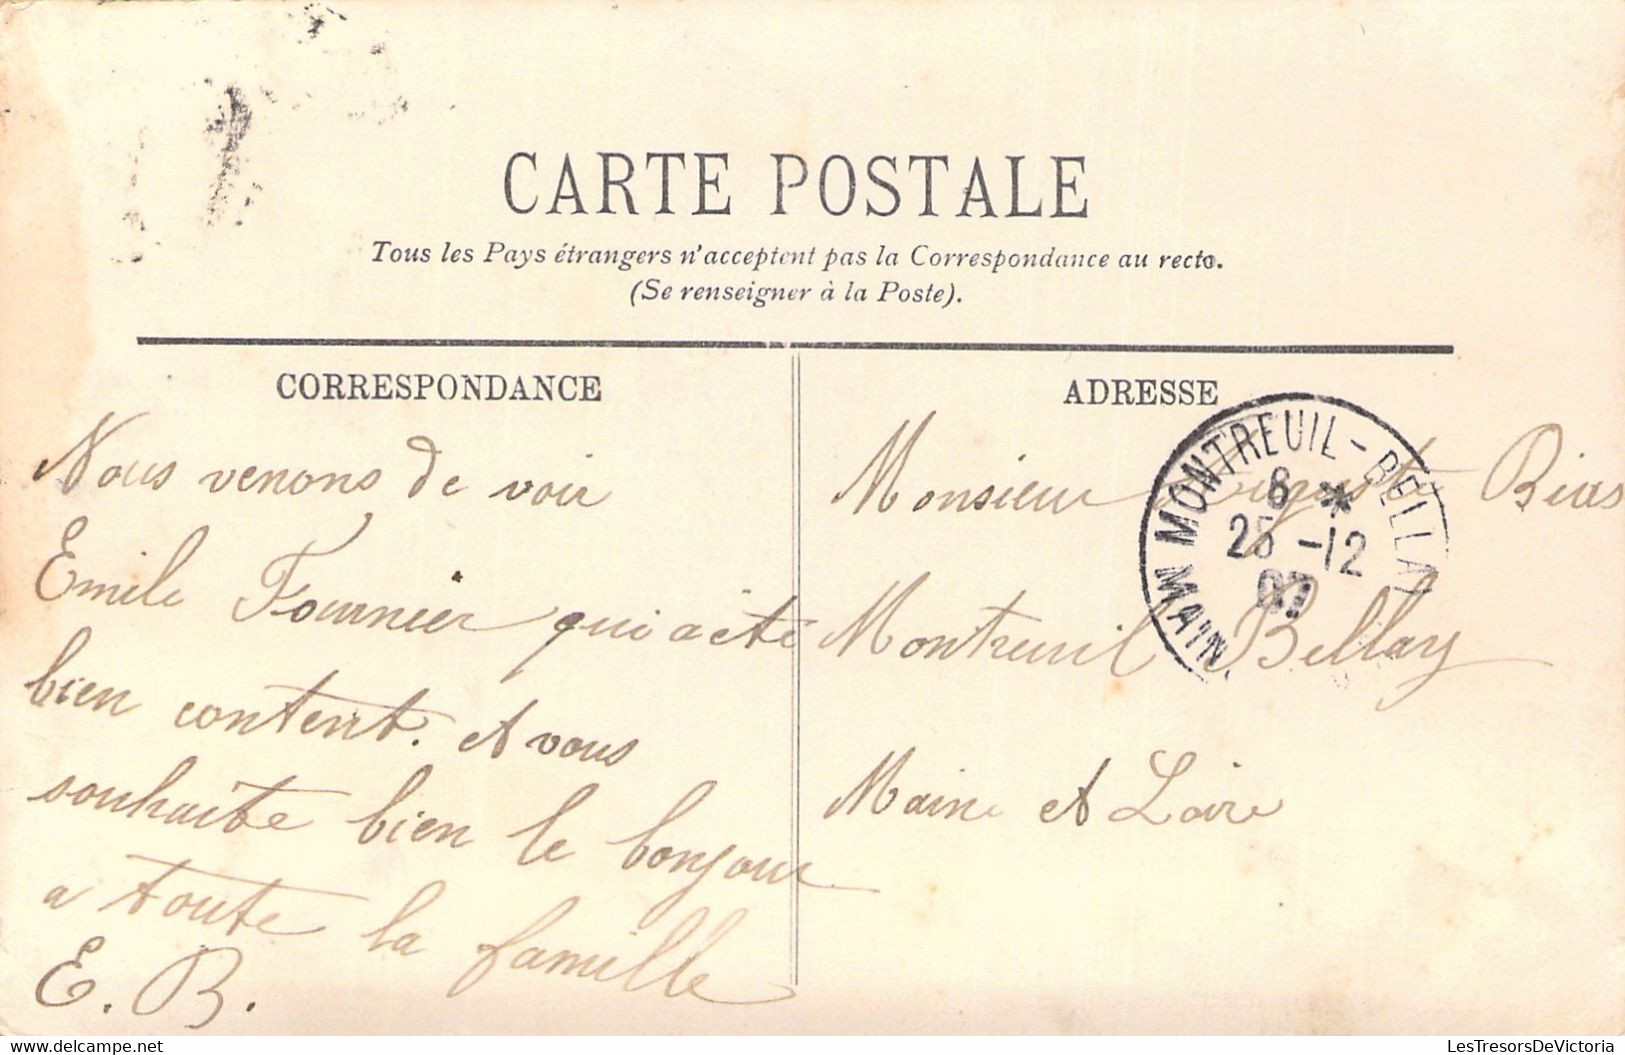 CARTE POSTALE
Tous les Pays étrangers n'acceptent pas la Correspondance au recto.
(Se renseigner à la Poste).
CORRESPONDANCE
Nous venons de voir
Emile Fournier qui a ete
bien content. et vous
souhaite bien le bonjour
a toute la famille
E. B.
ADRESSE
Monsieur Auguste Bias
Montreuil Bellay
Maine et Loire
MONTREUIL-BELLAY
MAIN
8 *
25 -12
07
delcampe.net
LesTresorsDeVictoria